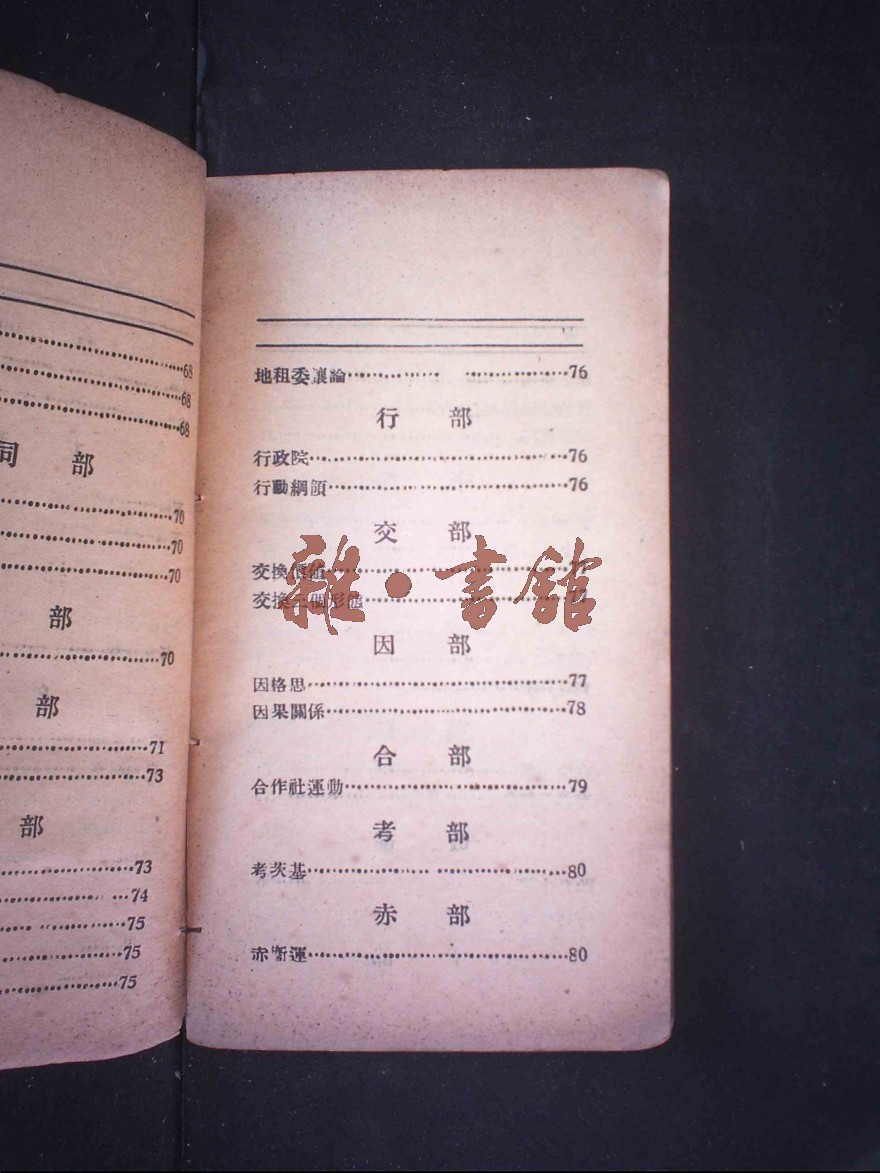 68
68
68
同 部
70
70
70
部
70
部
71
73
部
73
74
75
75
75
地租委讓論 76
行 部
行政院 76
行動綱領 76
交 部
交換價值
交換三個形態
因 部
因格思 77
因果關係 78
合 部
合作社運動 79
考 部
考茨基 80
赤 部
赤衛運 80
雜·書館